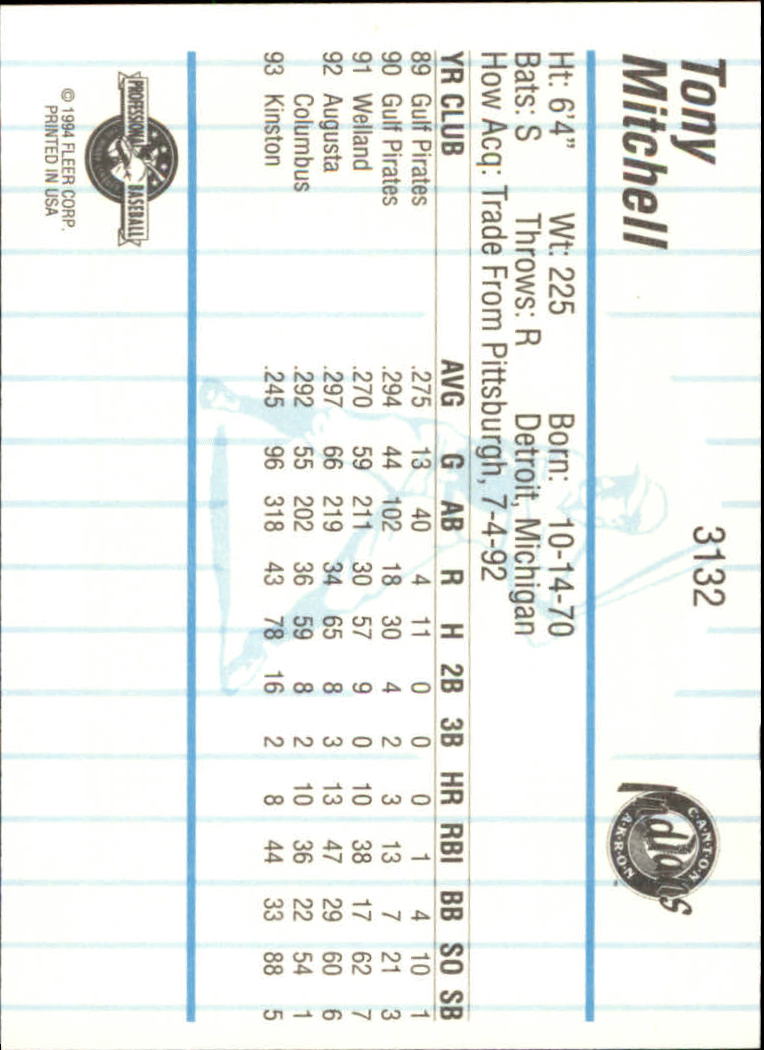 Tony
Mitchell
3132
CANTON
Indians
AKRON
Ht: 6'4" Wt: 225 Born: 10-14-70
Bats: S Throws: R Detroit, Michigan
How Acq: Trade From Pittsburgh, 7-4-92
YR CLUB AVG G AB R H 2B 3B HR RBI BB SO SB
89 Gulf Pirates .275 13 40 4 11 0 0 0 1 4 10 1
90 Gulf Pirates .294 44 102 18 30 4 2 3 13 7 21 3
91 Welland .270 59 211 30 57 9 0 10 38 17 62 7
92 Augusta .297 66 219 34 65 8 3 13 47 29 60 6
Columbus .292 55 202 36 59 8 2 10 36 22 54 1
93 Kinston .245 96 318 43 78 16 2 8 44 33 88 5
PROFESSIONAL BASEBALL
© 1994 FLEER CORP.
PRINTED IN USA